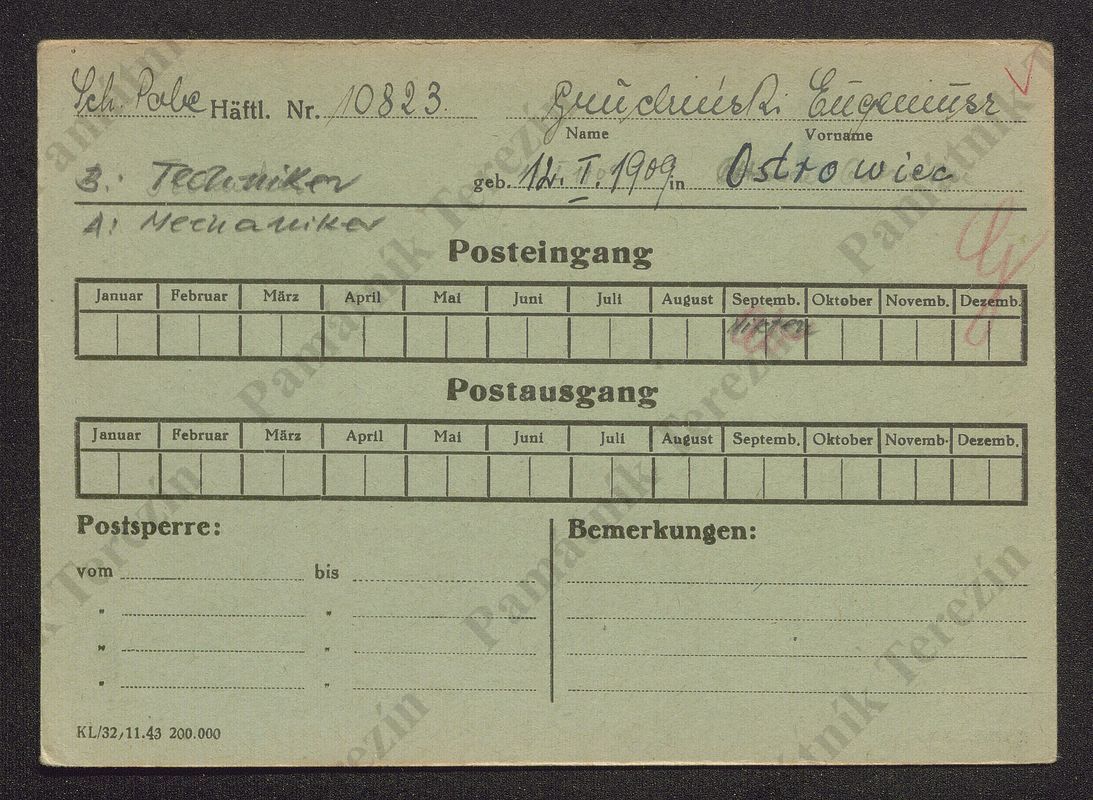 Sch. Pole Häftl. Nr. 10823 Eugeniusz
Name Vorname
B: Techniker geb. 12. I. 1909 in Ostrowiec
A: Mechaniker
Posteingang
Januar Februar März April Mai Juni Juli August Septemb. Oktober Novemb. Dezemb.
Postausgang
Januar Februar März April Mai Juni Juli August Septemb. Oktober Novemb. Dezemb.
Postsperre: Bemerkungen:
vom bis
" "
" "
" "
KL/32, 11.43 200.000
Památník Terezín